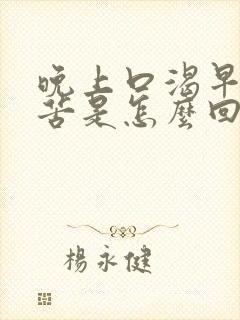 晚上口渴早
苦是怎麼回
楊永健